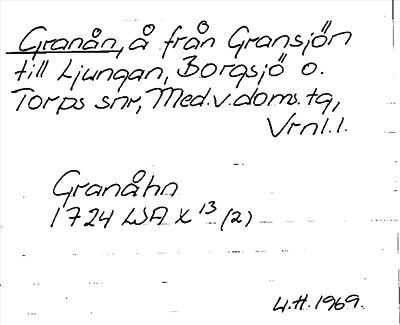 Granån, å från Gransjön
till Ljungan, Borgsjö o.
Torps snr, Med.v.doms.tg,
Vrnl.l.
Granåhn
1724 LSA X 13 (2)
L.H. 1969.